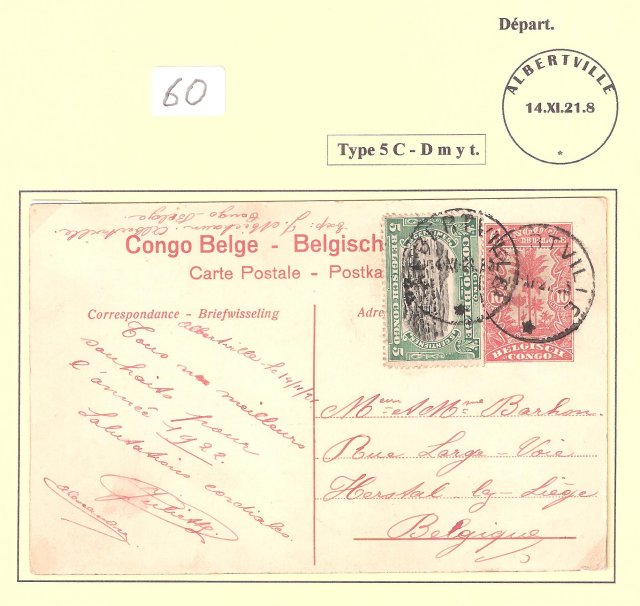 Départ.
60
ALBERTVILLE
14.XI.21.8
*
Type 5 C - D m y t.
Exp: J. Michaux. Albertville
Congo Belge
Congo Belge - Belgisch
Carte Postale - Postka
Correspondance - Briefwisseling
Adre
5 BELGISCH CONGO 5
BELGISCH
CONGO
ALBERTVILLE
VILLE
Albertville le 14/11/21
Tous nos meilleurs
souhaits pour
l'année 1922.
Salutations cordiales.
Juliette
Meur et Mme Barhon.
Rue Large-Voie
Herstal lg-Liège
Belgique